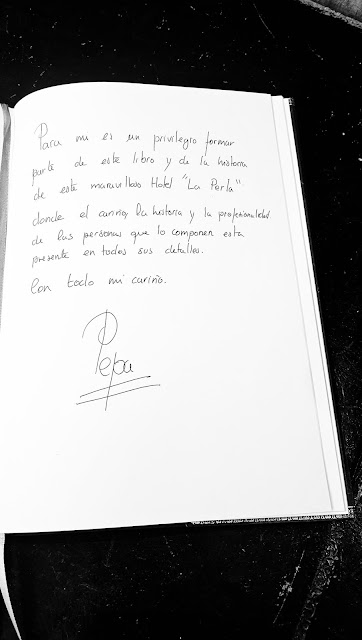 Para mi es un privilegio formar
parte de este libro y de la historia
de este maravilloso Hotel "La Perla"
donde el cariño, la historia y la profesionalidad
de las personas que lo componen esta
presente en todos sus detalles.
Con todo mi cariño.
Pepa